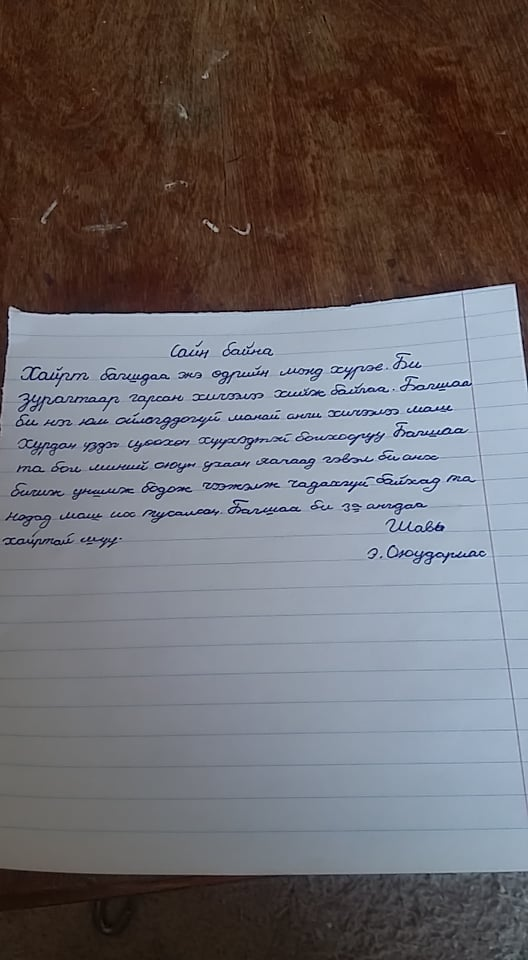 Сайн байна
Хайрт багшдаа энэ өдрийн мэнд хүргэе. Би
зурагтаар гарсан хичээлээ хийж байгаа. Багшаа
би нэг юм ойлгоддогүй манай анги хичээлээ маш
хурдан үздэг цоохон хүүхэдтэй болохооруу Багшаа
та бол миний оюун ухаан яагаад гэвэл би анх
бичиж уншиж бодож цээжилж чадахгүй байхад та
надад маш их тусалсан. Багшаа би 3ᵃ ангдаа
хайртай шүү.
Шавь
Э. Оюудармаа